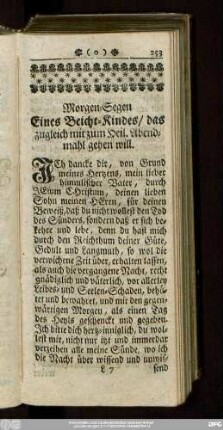 ( o ) 253
Morgen-Segen
Eines Beicht-Kindes / das
zugleich mit zum Heil. Abend-
mahl gehen will.
ICh dancke dir, von Grund
meines Hertzens, mein lieber
himmlischer Vater, durch
JEsum Christum, deinen lieben
Sohn meinen HErrn, für deinen
Beweiß, daß du nicht wollest den Tod
des Sünders, sondern daß er sich be-
kehre und lebe, denn du hast mich
durch den Reichthum deiner Güte,
Gedult und Langmuth, so wol die
verwichene Zeit über, erhalten lassen,
als auch die vergangene Nacht, recht
gnädiglich und väterlich, vor allerley
Leibes- und Seelen-Schaden, behü-
tet und bewahret, und mit den gegen-
wärtigen Morgen, als einen Tag
des Heyls geschenckt und gegeben.
Ich bitte dich hertz-inniglich, du wol-
lest mir, nicht nur itzt und immerdar
verzeihen alle meine Sünde, wo ich
die Nacht über wissend und unwis-
L 7 send